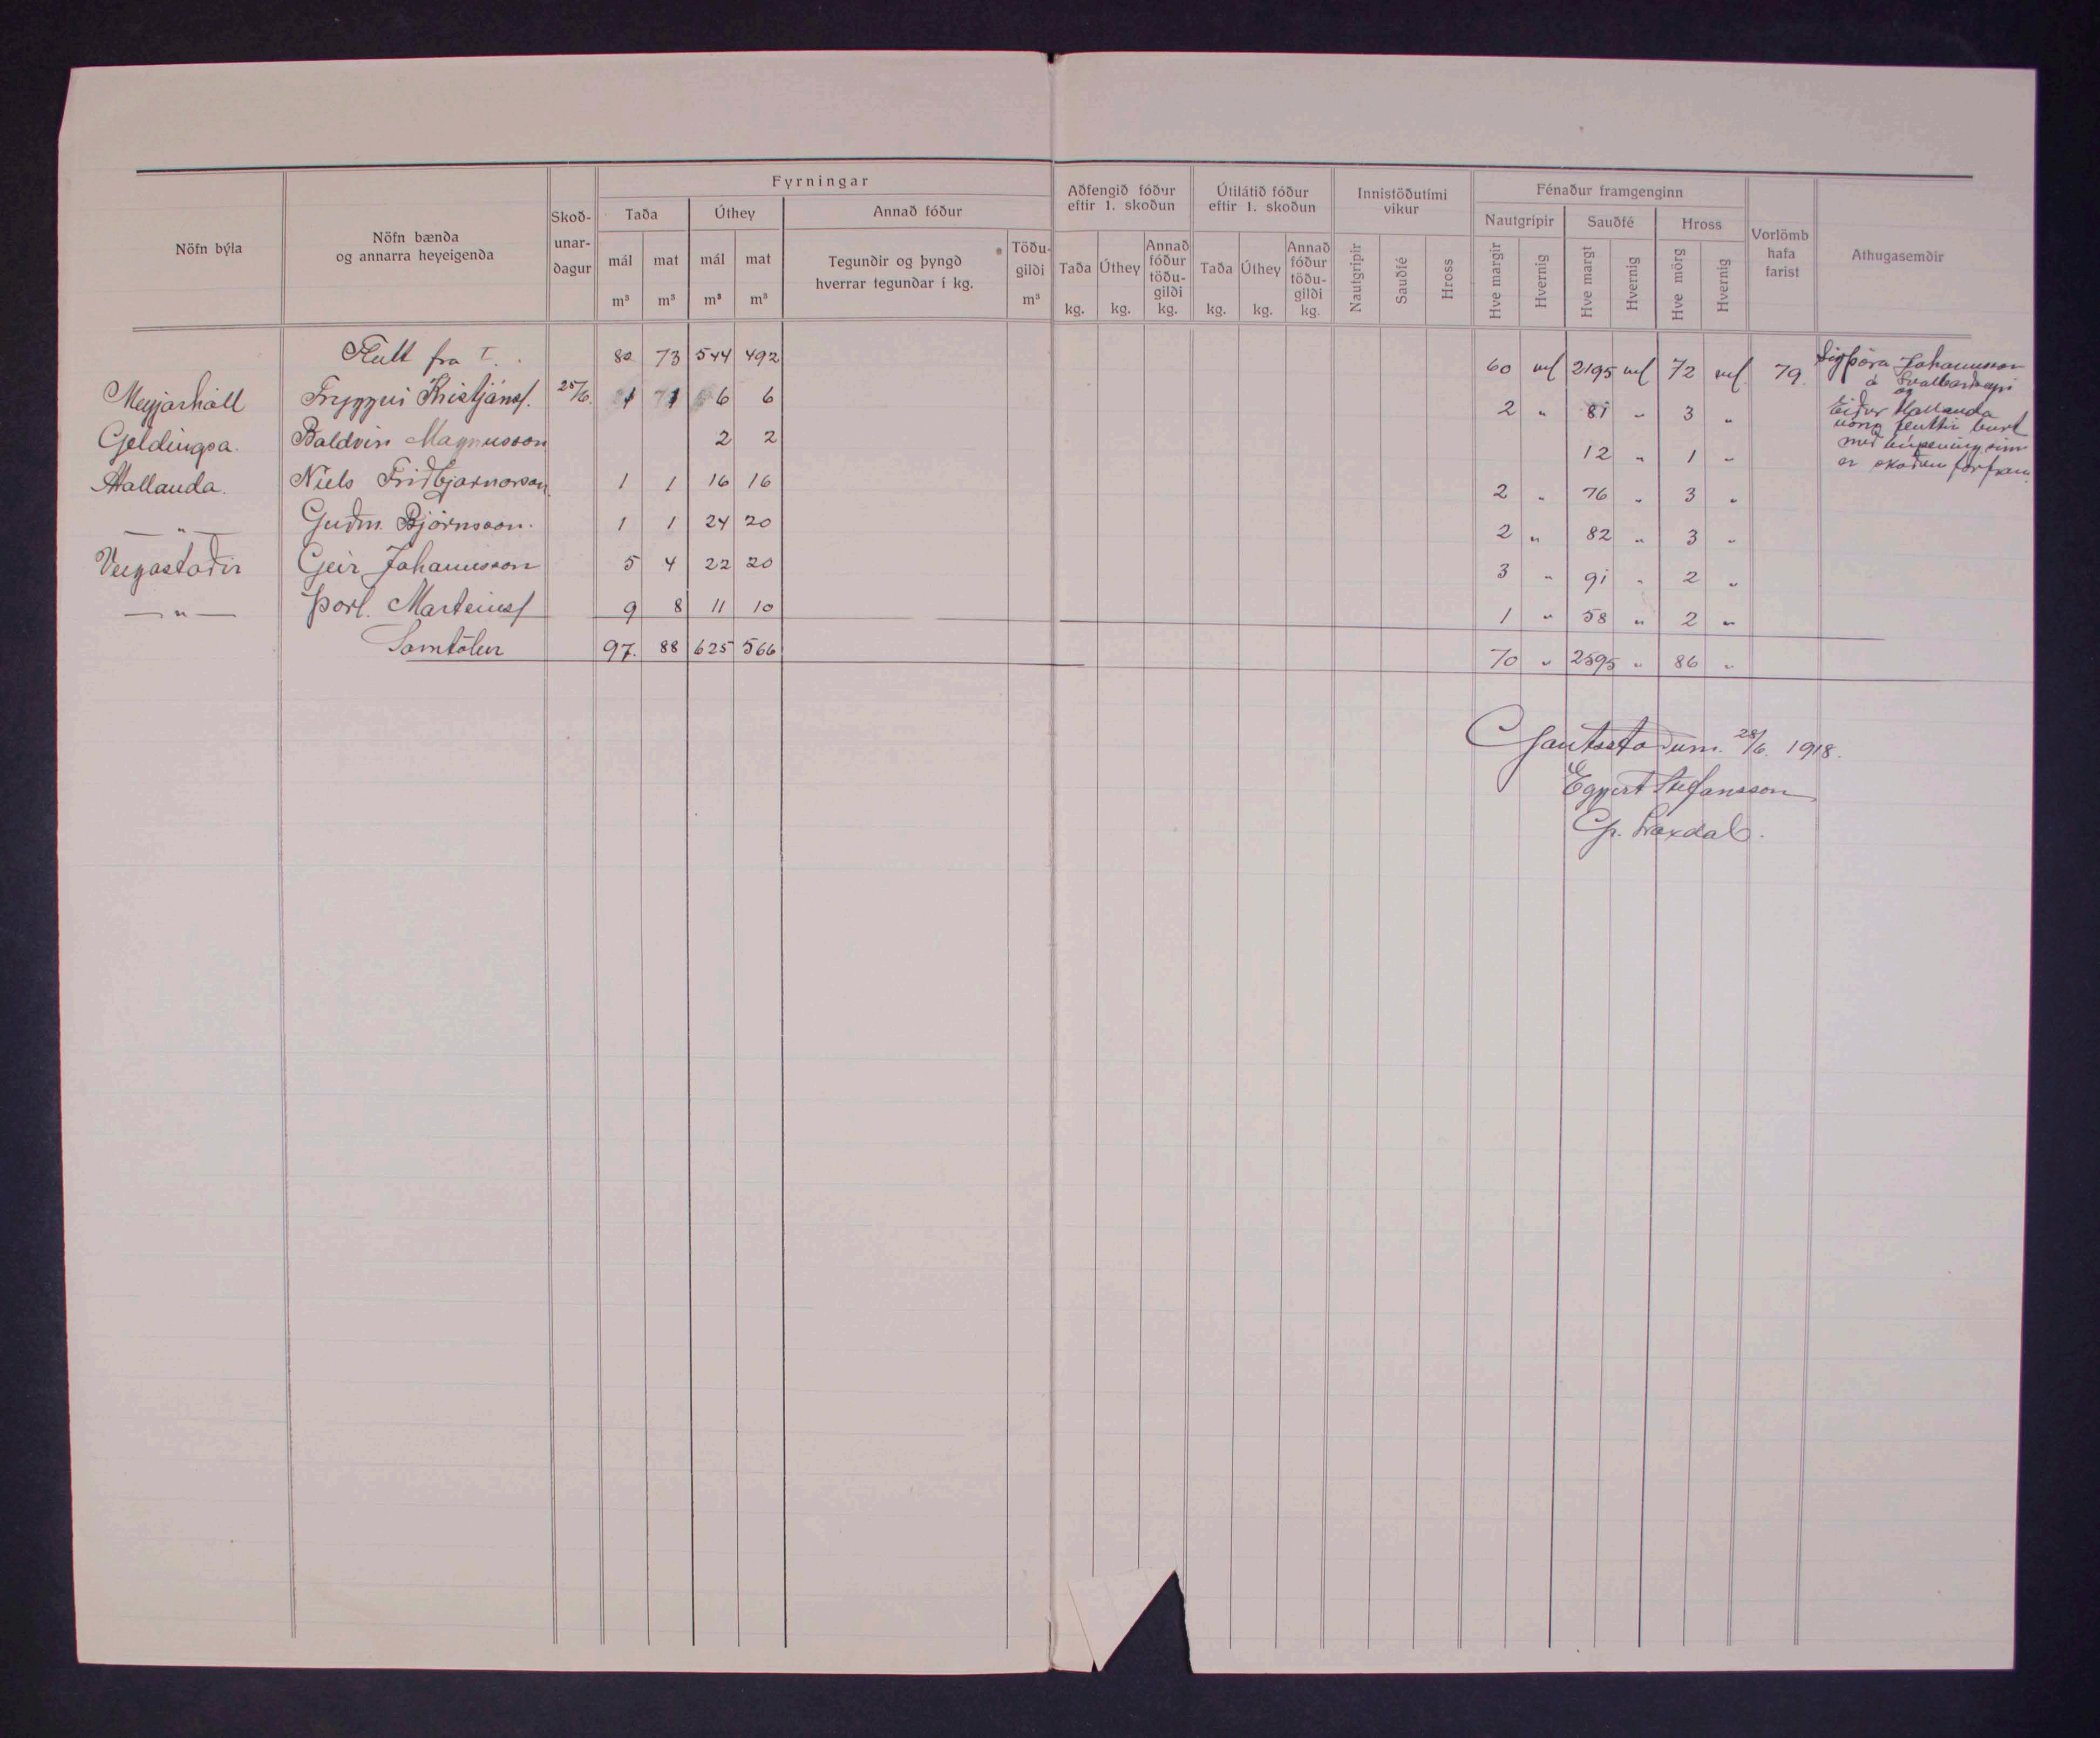 Nöfn býla
Nöfn bænda
og annarra heyeigenda
Skoð-
unar-
dagur
Fyrningar
Taða
Úthey
Annað fóður
mál
m³
mat
m³
mál
m³
mat
m³
Tegundir og þyngd
hverrar tegundar í kg.
Töðu-
gildi
m³
Aðfengið fóður
eftir 1. skoðun
Taða
kg.
Úthey
kg.
Annað
fóður
töðu-
gildi
kg.
Útilátið fóður
eftir 1. skoðun
Taða
kg.
Úthey
kg.
Annað
fóður
töðu-
gildi
kg.
Innistöðutími
vikur
Nautgripir
Sauðfé
Hross
Fénaður framgenginn
Nautgripir
Sauðfé
Hross
Hve margir
Hvernig
Hve margt
Hvernig
Hve mörg
Hvernig
Vorlömb
hafa
farist
Athugasemdir
Flutt fra I. 80 73 544 492 60 vel 2195 vel 72 vel 79
Meyjarhóll Tryggvi Kristjánss. 25/6. 1 1 6 6 2 " 81 " 3 "
Geldingsa. Baldvin Magnusson 2 2 12 " 1 "
Hallanda. Niels Friðbjarnarson 1 1 16 16 2 " 76 " 3 "
— " — Guðm. Björnsson. 1 1 24 20 2 " 82 " 3 "
Veigastaðir Geir Jóhannsson 5 4 22 20 3 " 91 " 2 "
— " — Þorl. Marteinss 9 8 11 10 1 " 58 " 2 "
Samtölur 97. 88 625 566 70 " 2595 " 86 "
Sigþóra Jóhannsson
á Svalbarðseyri
og
Eiður Hallanda
voru fluttir burt
með búpening sinn
er skoðun fór fram.
Gautsstöðum. 28/6. 1918.
Eggert Stefansson
G. Laxdal.